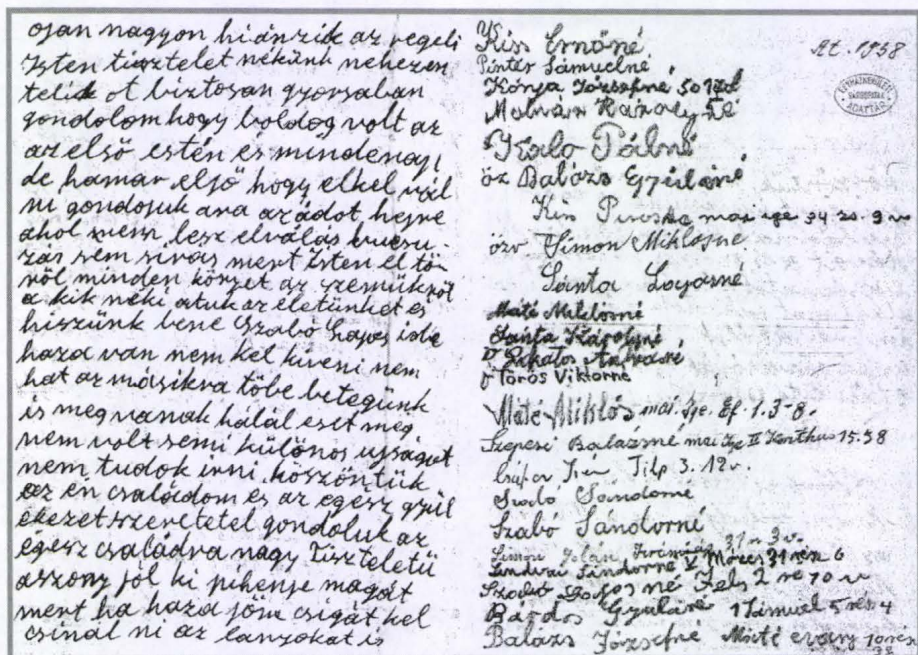 ojan nagyon hiánzik az regeli
Isten tisztelet nékünk nehezen
telik ot biztosan gyorsaban
gondolom hogy boldog volt az
az első estén es mindenapi
de hamar eljő hogy elkel vál
ni gondojuk ara azádot hejre
ahol nem lesz elválás bucsu-
zás sem sivás mert Isten el tö-
röl minden könyet az szemükröl
a kik néki atuk az életünket és
hiszünk bene Szabó Lajos ide
haza van nem kel kiveni nem
hat az másikra töbe betegünk
is meg vanak hálál eset meg
nem volt semi különos ujságot
nem tudok irni köszöntük
az én családom es az egesz gyül
ekezet szeretetel gondoluk az
egesz családra nagy Tiszteletü
aszony jól ki pihenje magát
mert ha haza jöm csigát kel
csinál ni az lányokat is
Kiss Ernőné
Pintér Sámuelné
Kónja Józsefné 50
Molnár Károly
Kaló Pálné
öz Balázs Gyuláné
Kis Piroska mai ige 34 zs. 9 v
özv Simon Miklosne
Sánta Lajosné
Máté Miklósné
Sánta Károlyné
Törös Viktorné
Máté Miklós mai ige. Ef. 1. 3-8.
Szepesi Balázsné mai ige II 15.58
Filp 3. 12 v.
Szabó Sándorné
Szabó Sándorné
Simon Jolán 31 r 3 v.
Sándorné V Mózes 31 rész 6
Szabó Lajosné Zsol 2 re 10 v
Bárdos Gyuláné 1 Sámuel 5 rész 4
Balázs Józsefné Máté evang 10 rész
32
At. 1958
EGYHÁZKERÜLETI
ADATTÁR